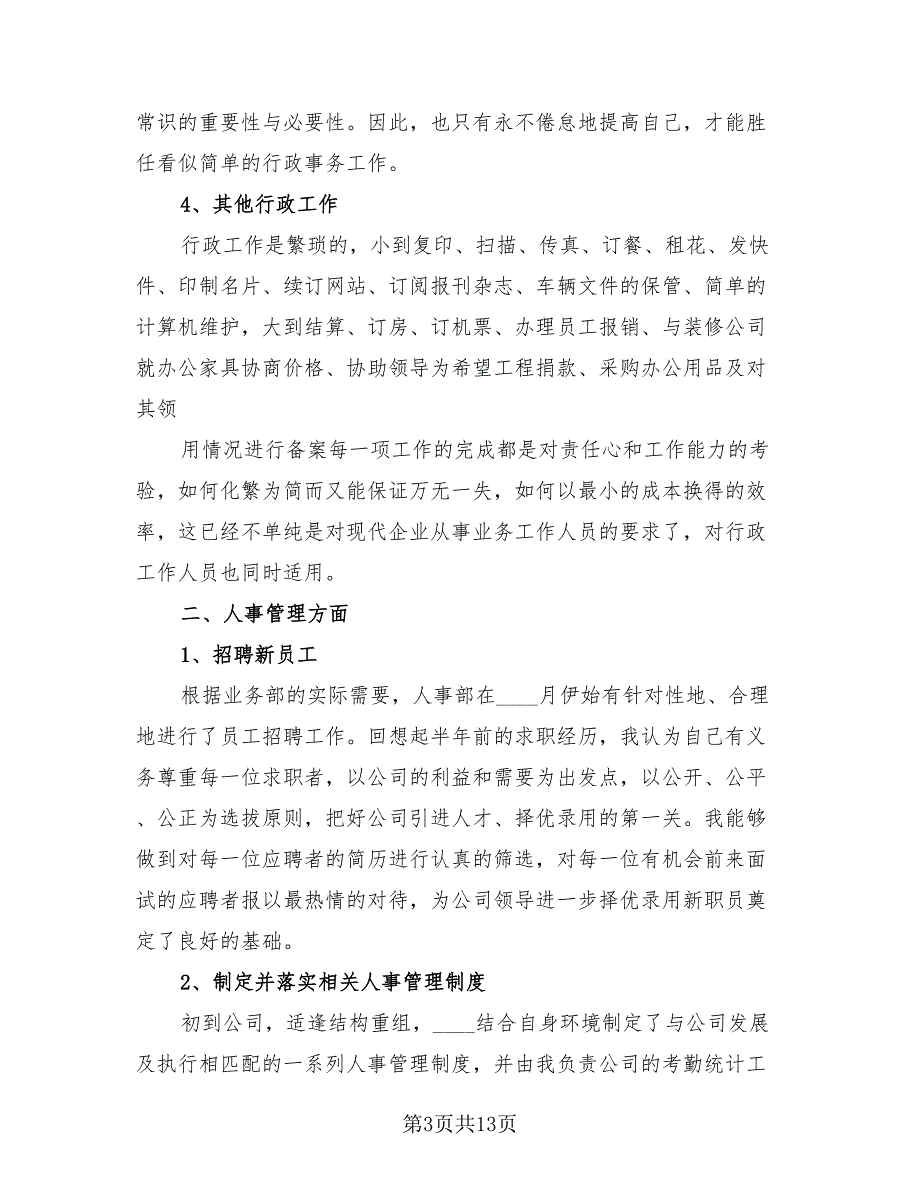 常识的重要性与必要性。因此，也只有永不倦怠地提高自己，才能胜
任看似简单的行政事务工作。
4、其他行政工作
行政工作是繁琐的，小到复印、扫描、传真、订餐、租花、发快
件、印制名片、续订网站、订阅报刊杂志、车辆文件的保管、简单的
计算机维护，大到结算、订房、订机票、办理员工报销、与装修公司
就办公家具协商价格、协助领导为希望工程捐款、采购办公用品及对
其领
用情况进行备案每一项工作的完成都是对责任心和工作能力的考
验，如何化繁为简而又能保证万无一失，如何以最小的成本换得的效
率，这已经不单纯是对现代企业从事业务工作人员的要求了，对行政
工作人员也同时适用。
二、人事管理方面
1、招聘新员工
根据业务部的实际需要，人事部在____月伊始有针对性地、合理
地进行了员工招聘工作。回想起半年前的求职经历，我认为自己有义
务尊重每一位求职者，以公司的利益和需要为出发点，以公开、公平
、公正为选拔原则，把好公司引进人才、择优录用的第一关。我能够
做到对每一位应聘者的简历进行认真的筛选，对每一位有机会前来面
试的应聘者报以最热情的对待，为公司领导进一步择优录用新职员奠
定了良好的基础。
2、制定并落实相关人事管理制度
初到公司，适逢结构重组，____结合自身环境制定了与公司发展
及执行相匹配的一系列人事管理制度，并由我负责公司的考勤统计工
第3页共13页